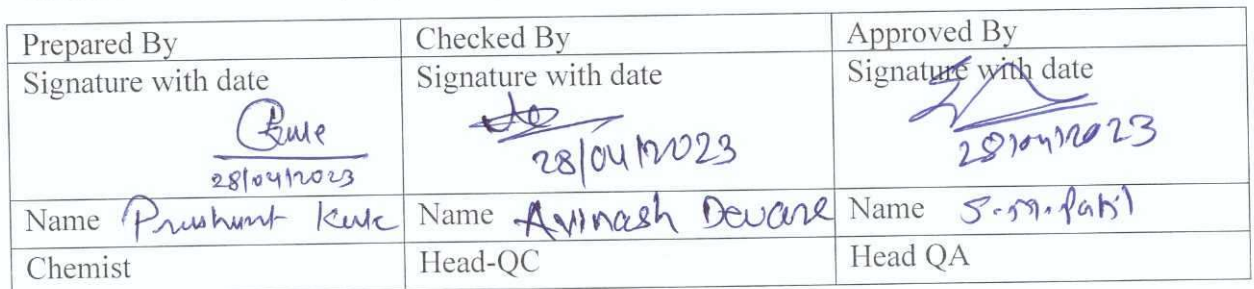 Prepared By Checked By Approved By
Signature with date Signature with date Signature with date
28/04/2023 28/04/2023 28/04/2023
Name Prashant Kule Name Avinash Devare Name S.M. Patil
Chemist Head-QC Head QA